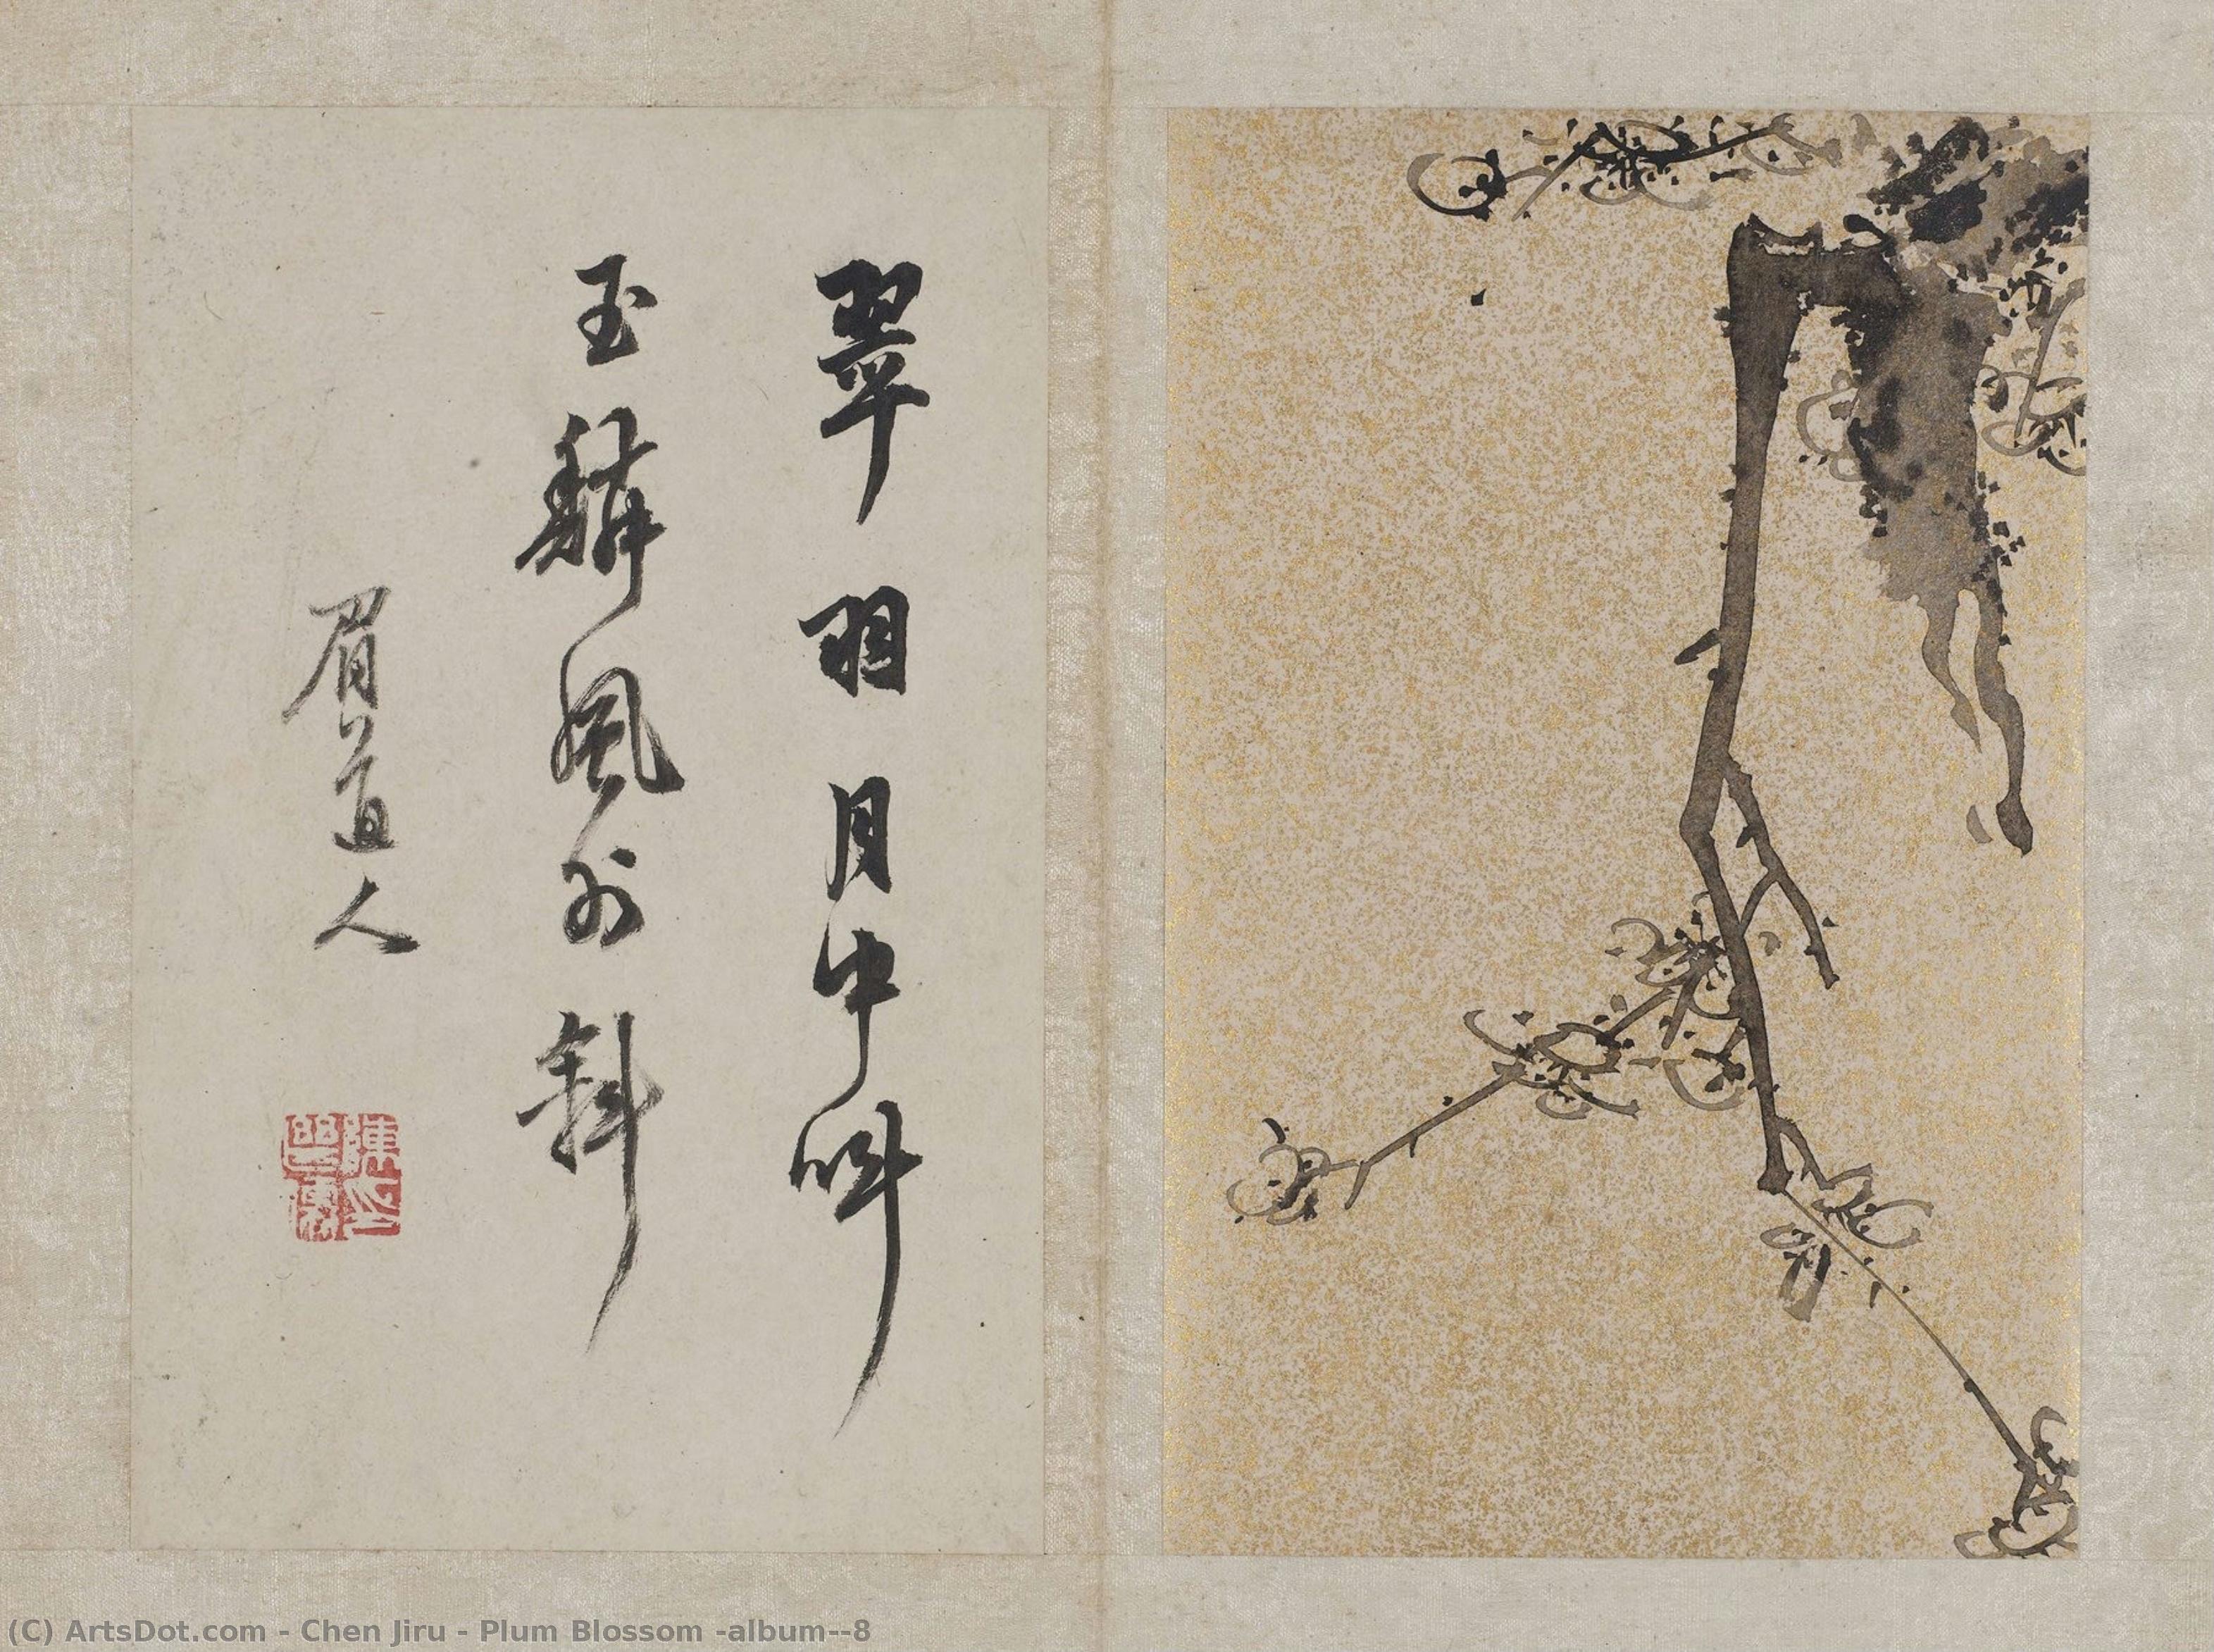 翠羽月中呌
玉鱗風外斜
眉道人
陳印繼儒
(C) ArtsDot.com - Chen Jiru - Plum Blossom -album--8